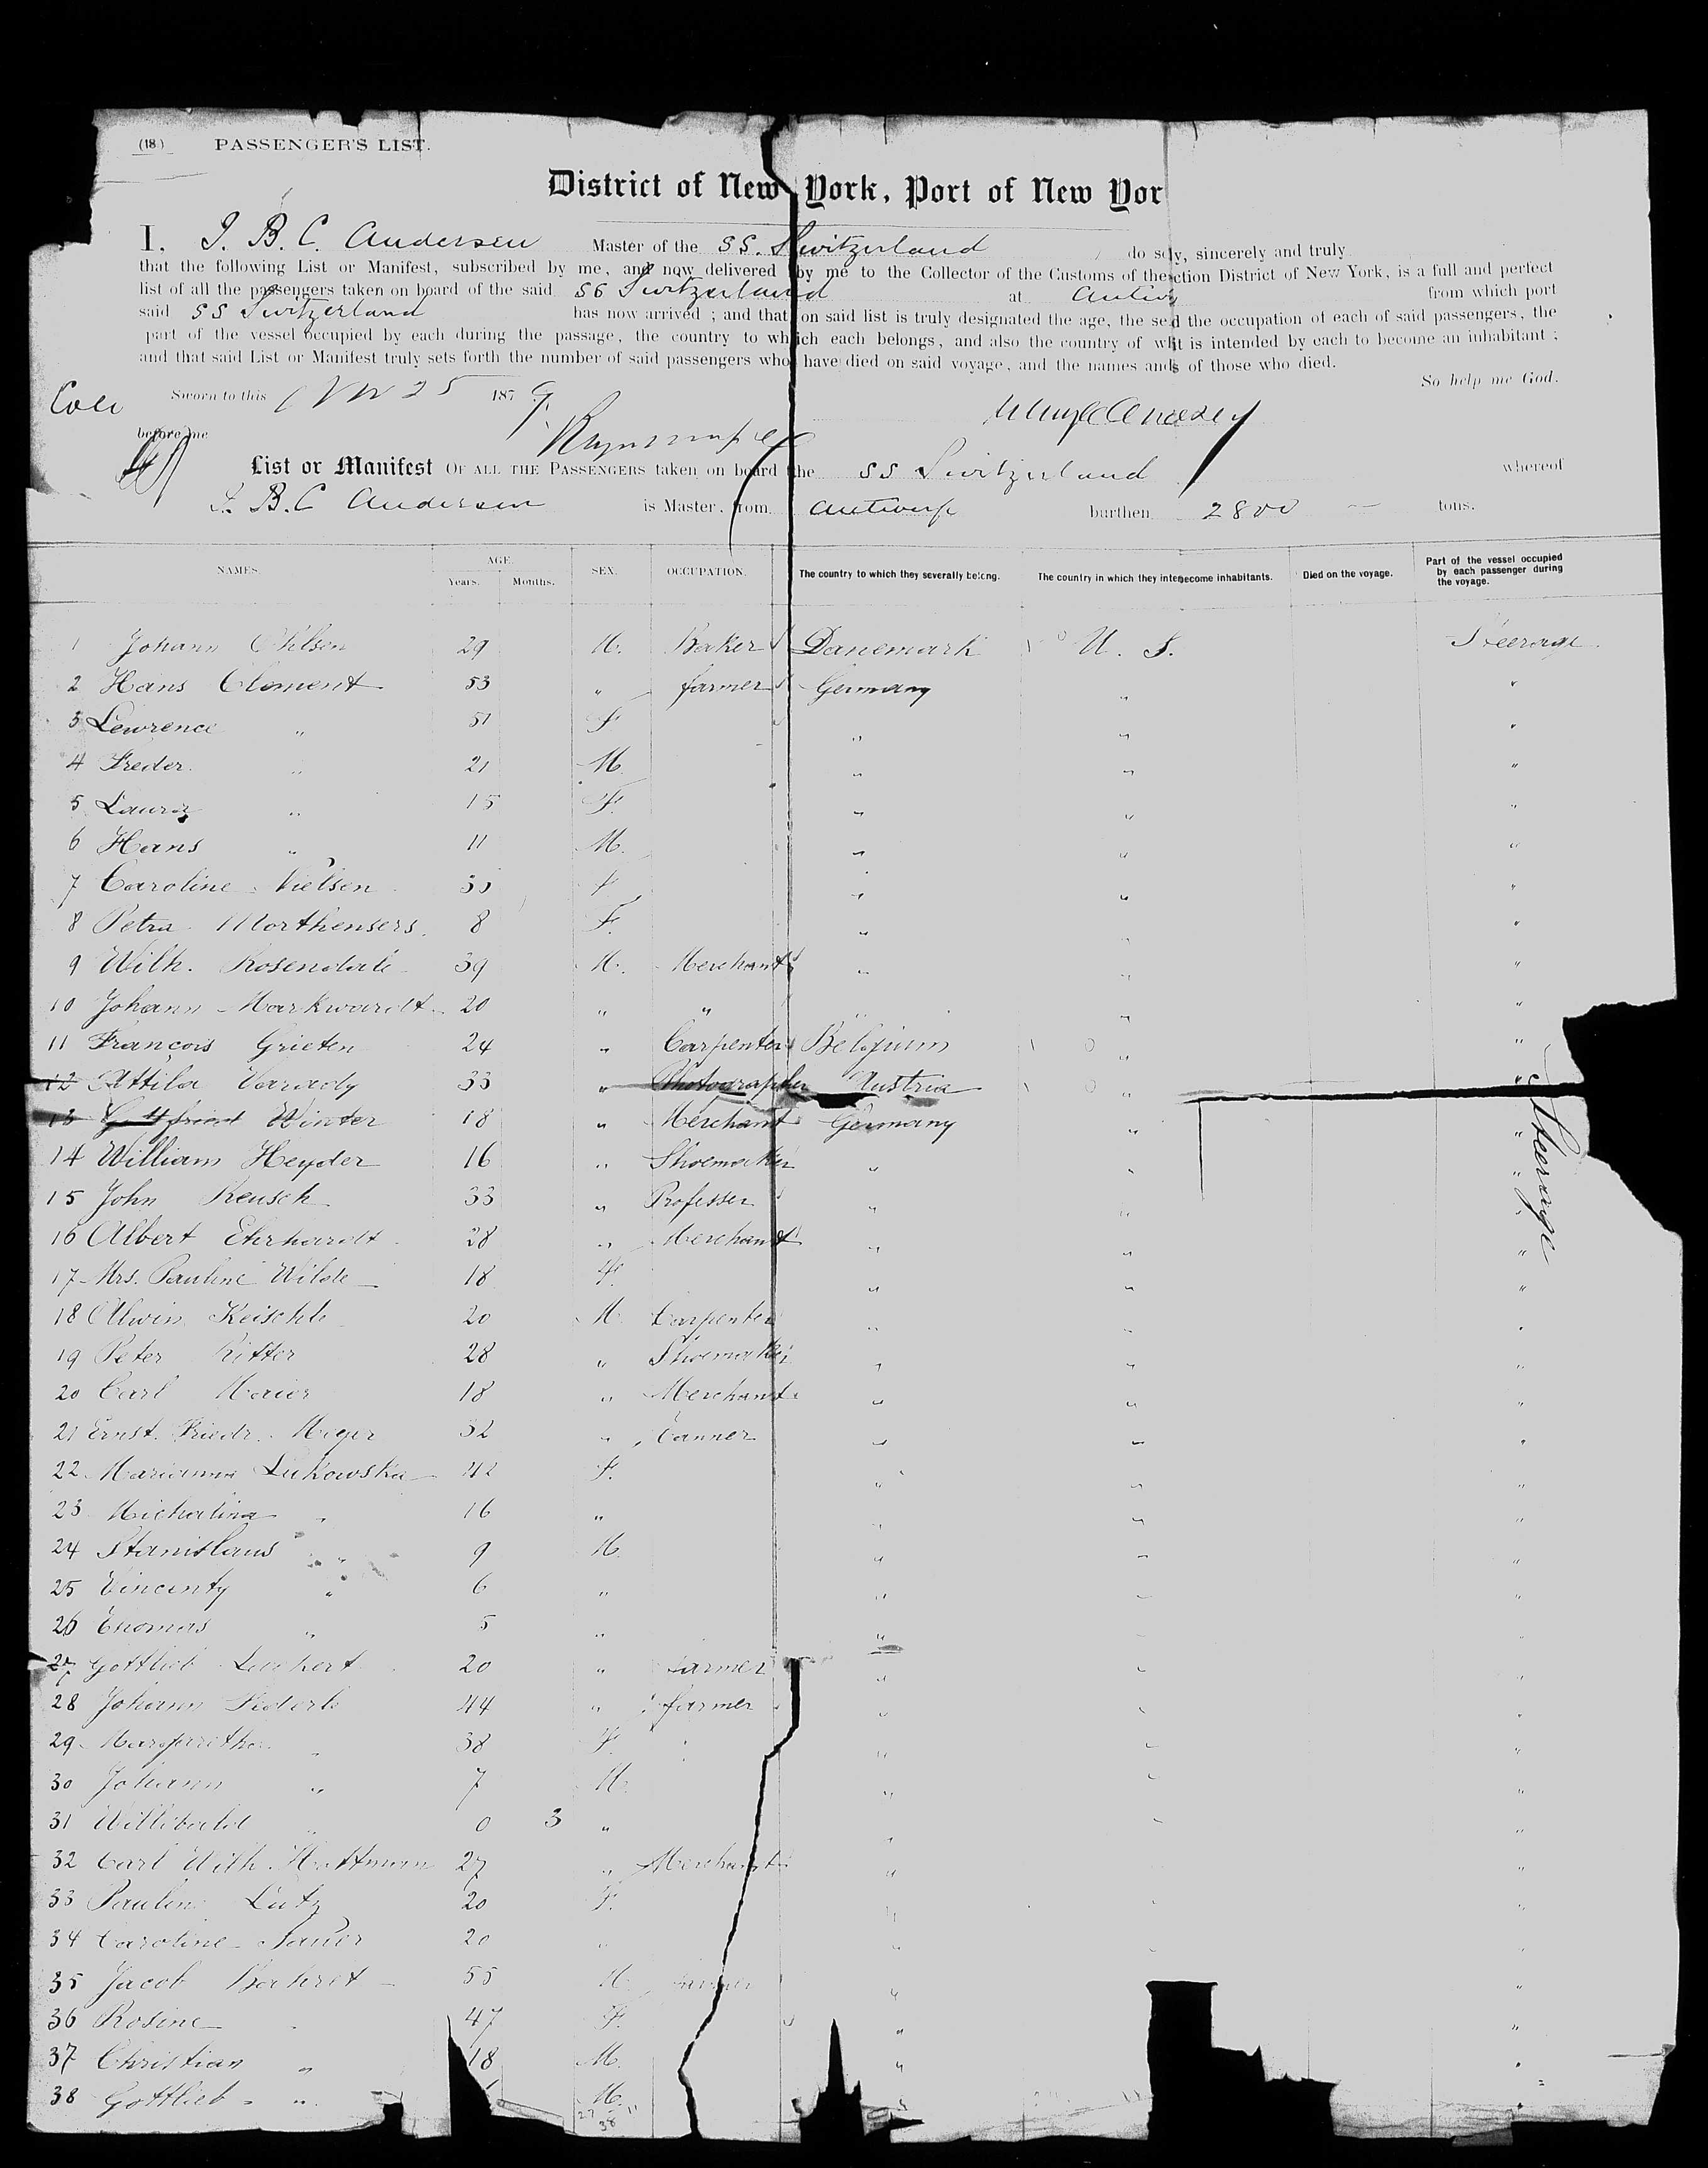 (18) PASSENGER'S LIST.
District of New York, Port of New Yor
I, J. B. C. Andersen Master of the SS. Switzerland do so ly, sincerely and truly
that the following List or Manifest, subscribed by me, and now delivered by me to the Collector of the Customs of the ction District of New York, is a full and perfect
list of all the passengers taken on board of the said SS Switzerland at Antw from which port
said SS Switzerland has now arrived ; and that on said list is truly designated the age, the se d the occupation of each of said passengers, the
part of the vessel occupied by each during the passage, the country to which each belongs, and also the country of wh it is intended by each to become an inhabitant ;
and that said List or Manifest truly sets forth the number of said passengers who have died on said voyage, and the names and s of those who died.
So help me God.
Sworn to this Nov 25 1879
before me
List or Manifest OF ALL THE PASSENGERS taken on board the SS Switzerland whereof
J. B. C Andersen is Master, from Antwerp burthen 2800 tons.
NAMES. AGE. Years. Months. SEX. OCCUPATION. The country to which they severally belong. The country in which they inte become inhabitants. Died on the voyage. Part of the vessel occupied by each passenger during the voyage.
1 Johann Ohlsen 29 M. Baker Danemark U. S. Steerage
2 Hans Clement 53 " farmer Germany " "
3 Lewrence " 51 F. " " "
4 Freder. " 21 M. " " "
5 Laura " 15 F. " " "
6 Hans " 11 M. " " "
7 Caroline Nielsen F " " "
8 Petra Morthensers 8 F. " " "
9 Wilh. Rosendale 39 M. Merchant " " "
10 Johann Markwardt 20 " " " " "
11 Francois Grieten 24 " Carpenter Belgium " "
12 Attila Varady 33 " Photographer Austria " "
13 Gottfried Winter 18 " Merchant Germany " "
14 William Heyder 16 " Shoemaker " " "
15 John Reusch 33 " Professer " " "
16 Albert Ehrhardt 28 " Merchant " " "
Steerage
17 Mrs. Pauline Wilde 18 F. " " "
18 Alwin Keischle 20 M. Carpenter " " "
19 Peter Ritter 28 " Shoemaker " " "
20 Carl Maier 18 " Merchant " " "
21 Ernst. Friedr. Meyer 32 " Tanner " " "
22 Marianna Lukowska 42 F. " " "
23 Michalina " 16 " " " "
24 Stanislaus " 9 M. " " "
25 Vincenty " 6 " " " "
26 Thomas " 5 " " " "
27 Gottlieb 20 " farmer " " "
28 Johann 44 " farmer " " "
29 Margaretha " 38 F. " " "
30 Johann " 7 M. " " "
31 Willibald " 0 3 " " " "
32 Carl Wilh. Hoffmann 27 " Merchant " "
33 Pauline Lutz 20 F. " "
34 Caroline Sauer 20 " " " "
35 Jacob 55 M. farmer " "
36 Rosine 47 F. " "
37 Christian " 18 M. " "
38 Gottlieb " M. "